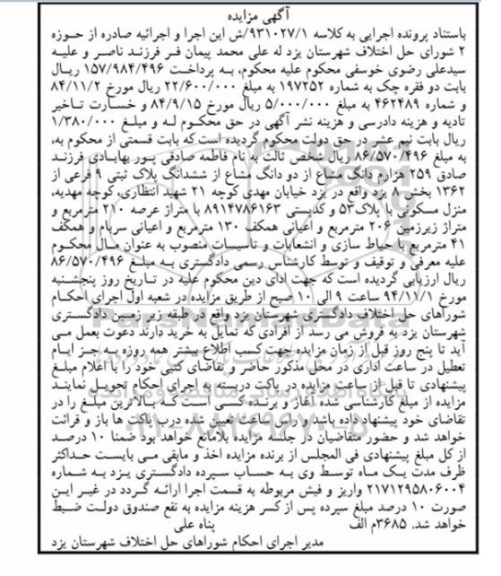 آگهی مزایده
باستناد پرونده اجرایی به کلاسه ۹۳۱۰۲۷/۱/ش این اجرا و اجرائیه صادره از حوزه
۲ شورای حل اختلاف شهرستان یزد له علی محمد پیمان فر فرزند ناصر و علیه
سیدعلی رضوی خوسفی محکوم علیه محکوم، به پرداخت ۱۵۷/۹۸۴/۴۹۶ ریال
بابت دو فقره چک به شماره ۱۹۷۲۵۲ به مبلغ ۲۲/۶۰۰/۰۰۰ ریال مورخ ۸۴/۱۱/۲
و شماره ۴۶۲۴۸۹ به مبلغ ۵/۰۰۰/۰۰۰ ریال مورخ ۸۴/۹/۱۵ و خسارت تاخیر
تادیه و هزینه دادرسی و هزینه نشر آگهی در حق محکوم له و مبلغ ۱/۳۸۰/۰۰۰
ریال بابت نیم عشر در حق دولت محکوم گردیده است که بابت قسمتی از محکوم به،
به مبلغ ۸۶/۵۷۰/۴۹۶ ریال شخص ثالث به نام فاطمه صادقی پور بهابادی فرزند
صادق ۲۵۹ هزارم دانگ مشاع از دو دانگ مشاع از ششدانگ پلاک ثبتی ۹ فرعی از
۱۳۶۲ بخش ۸ یزد واقع در یزد خیابان مهدی کوچه ۲۱ شهید انتظاری، کوچه مهدیه،
منزل مسکونی با پلاک ۵۳ و کدپستی ۸۹۱۴۷۸۶۱۶۳ با متراژ عرصه ۲۷۰ مترمربع و
متراژ زیرزمین ۲۰۶ مترمربع و اعیانی همکف ۱۳۰ مترمربع و اعیانی سربام و همکف
۴۱ مترمربع با حیاط سازی و انشعابات و تأسیسات منصوب به عنوان مال محکوم
علیه معرفی و توقیف و توسط کارشناس رسمی دادگستری به مبلغ ۸۶/۵۷۰/۴۹۶
ریال ارزیابی گردیده است که جهت ادای دین محکوم علیه در تاریخ روز پنجشنبه
مورخ ۹۴/۱۱/۱ ساعت ۹ الی ۱۰ صبح از طریق مزایده در شعبه اول اجرای احکام
شوراهای حل اختلاف دادگستری شهرستان یزد واقع در طبقه زیر زمین دادگستری
شهرستان یزد به فروش می رسد از افرادی که تمایل به خرید دارند دعوت بعمل می
آید تا پنج روز قبل از زمان مزایده جهت کسب اطلاع بیشتر همه روزه به جز ایام
تعطیل در ساعت اداری در محل مذکور حاضر و تقاضای کتبی خود را با اعلام مبلغ
پیشنهادی تا قبل از ساعت مزایده در پاکت دربسته به اجرای احکام تحویل نمایند
مزایده از مبلغ کارشناسی شده آغاز و برنده کسی است که بالاترین مبلغ را در
تقاضای خود پیشنهاد داده باشد و راس ساعت تعیین شده درب پاکت ها باز و قرائت
خواهد شد و حضور متقاضیان در جلسه مزایده بلامانع خواهد بود ضمنا ۱۰ درصد
از کل مبلغ پیشنهادی فی المجلس از برنده مزایده اخذ و مابقی می بایست حداکثر
ظرف مدت یک ماه توسط وی به حساب سپرده دادگستری یزد به شماره
۲۱۷۱۲۹۵۸۰۶۰۰۴ واریز و فیش مربوطه به قسمت اجرا ارائه گردد در غیر این
صورت ۱۰ درصد مبلغ سپرده پس از کسر هزینه مزایده به نفع صندوق دولت ضبط
خواهد شد. ۳۶۸۵م الف پناه علی
مدیر اجرای احکام شوراهای حل اختلاف شهرستان یزد